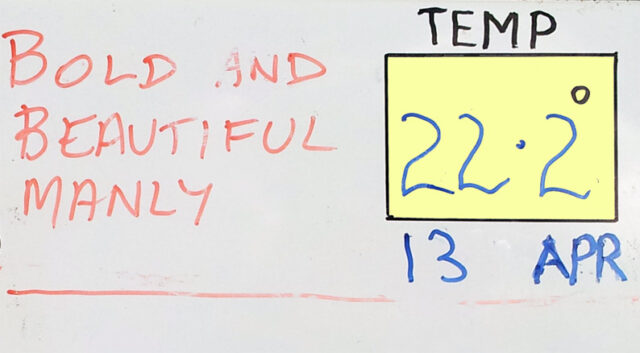 BOLD AND
BEAUTIFUL
MANLY
TEMP
22.2°
13 APR